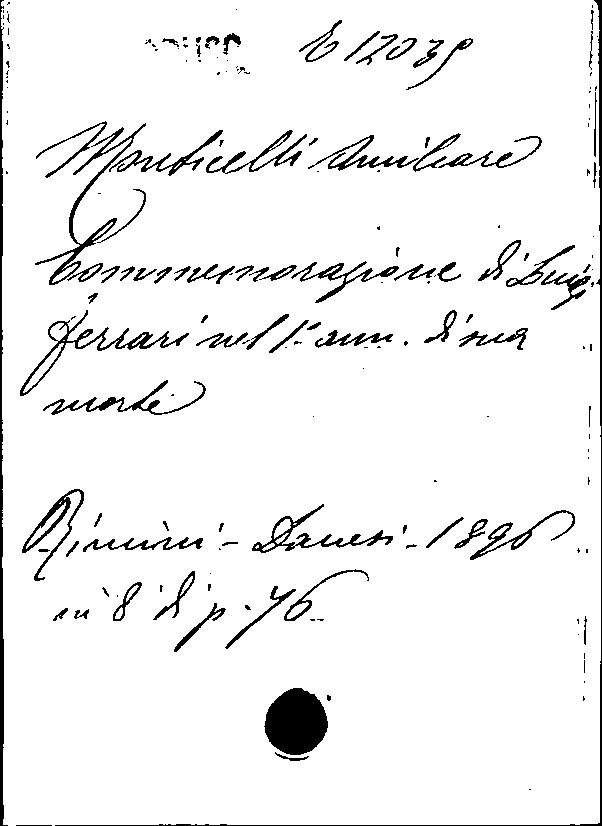 E 12039
Monticelli Amilcare
Commemorazione di Luigi
Ferrari nel 1º ann. di sua
morte
Rimini - Danesi - 1896
in 8 di p. 76